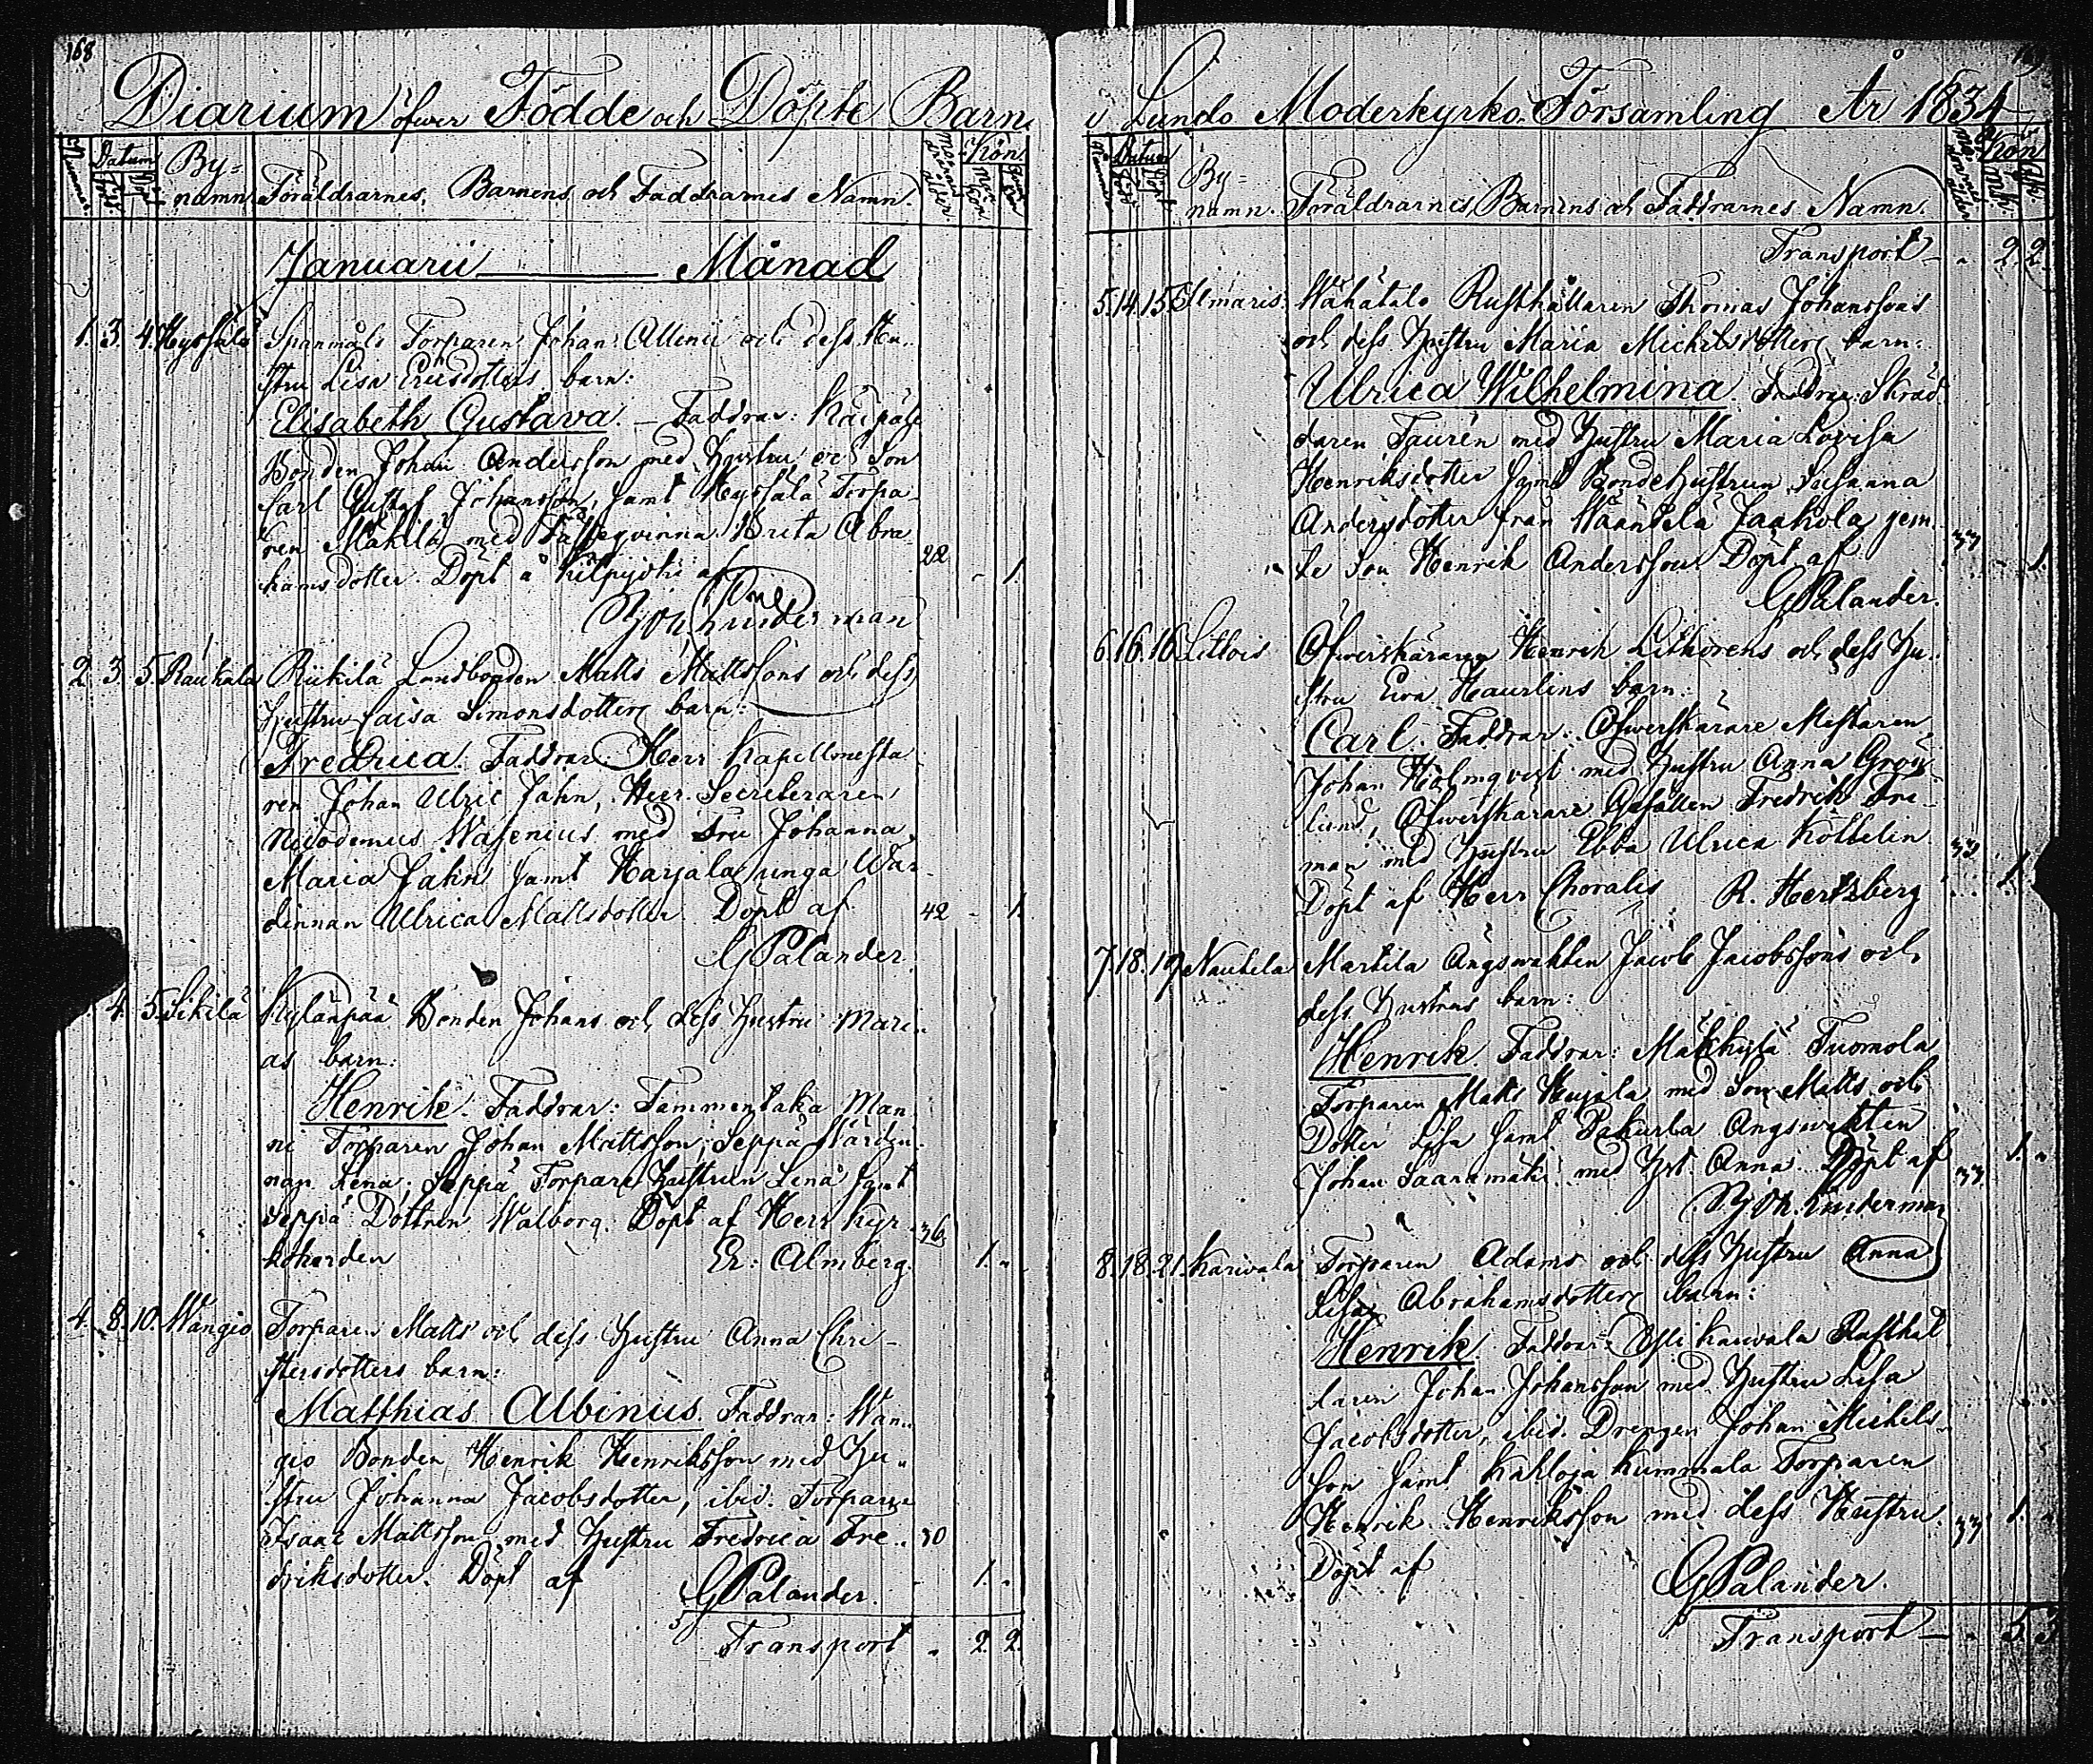 168
Diarium öfwer Födde och Döpte Barn
Nummer. Datum By= Mödrarnes ålder Kön.
Född Döpt namn Föräldrarnes, Barnens och Faddrarnes Namn. Mankön
Januarii Månad
1. 3. 4. Spanmåls Torparen Johan och dess Hu-
stru Lisa Ericsdotters barn:
Elisabeth Gustava. — Faddrar:
Bonden Johan Andersson med Hustru och Son
Carl Gustaf Johansson, samt Torpa-
ren Mäkilä med Brita Abra-
hamsdotter. Döpt å af 22 - 1.
Linderman
2. 3. 5. Raukala Riikilä Landbonden Matts Mattssons och dess
Hustru Caisa Simonsdotters barn:
Fredrica. Faddrar: Herr Kapellmesta-
ren Johan Ulric Jahn, Herr Secreteraren
Nicodemus Wasenius med Fru Johanna
Maria Jahn samt Harjala unga Wär-
dinnan Ulrica Mattsdotter. Döpt af 42 - 1.
G Palander.
4. 5. Sikilä Kylänpää Bonden Johans och dess Hustru Mari-
as barn:
Henrik. Faddrar: Tammentaka Man
ni Torparen Johan Mattsson, Seppä Wärdin-
nan Lena, Seppä Torpare Hustrun Lena samt
Seppä Dottren Walborg. Döpt af Herr Kyr- 36
koherden Er: Almberg. 1. "
4. 8. 10. Wangio Torparen Matts och dess Hustru Anna Chri-
stersdotters barn:
Matthias Albinus. Faddrar: Wan-
gio Bonden Henrik Henriksson med Hu-
stru Johanna Jacobsdotter, ibid. Torparen
Isaac Mattsson med Hustru Fredrica Fre- 30
driksdotter. Döpt af 1. "
G Palander.
Transport " 2. 2.
i Lundo Moderkyrko Församling År 1834
Nummer Datum By= Mödrarnes ålder Kön
Född Döpt namn. Föräldrarnes, Barnens och Faddrarnes Namn.
Transport - " 2. 2.
5. 14. 15. Ilmaris. Wähätalo Rusthållaren Thomas Johanssons
och dess Hustru Maria Michelsdotters barn:
Ulrica Wilhelmina. Faddrar: Skräd
daren Taurén med Hustru Maria Lovisa
Henriksdotter samt Bondehustrun Susanna
Andersdotter från Wääntelä Jaakola jem- 33
te Son Henrik Andersson. Döpt af - 1.
G Palander.
6. 16. 16. Littois Öfwerskäraren Henrik Lithoréns och dess Hu-
stru Eva Haurlins barn:
Carl. Faddrar: Öfwerskärare Mestaren
Johan Holmqvist med Hustru Anna Grön-
lund, Öfwerskärare Gesällen Fredrik Fri-
man med Hustru Ebba Ulrica 33
Döpt af Herr Choralis R. Hertzberg 1.
7. 18. 19. Nautela Martila Ängswakten Jacob Jacobssons och
dess Hustrus barn:
Henrik. Faddrar: Mäkkylä Tuomola
Torparen Matts Heyjala med Son Matts och
Dotter Lisa samt Pahurla Ängswakten
Johan Saaramäki med Hust. Anna. Döpt af 33 1. "
Linderman
8. 18. 21. Karivala Torparen Adams och dess Hustru Anna
Lisa Abrahamsdotters barn:
Henrik. Faddrar: Karwala Rusthål
laren Johan Johansson med Hustru Lisa
Jacobsdotter, ibid. Drengen Johan Michels-
son samt Kummala Torparen
Henrik Henriksson med dess Hustru. 33 1. "
Döpt af
G Palander.
Transport — " 5. 3.